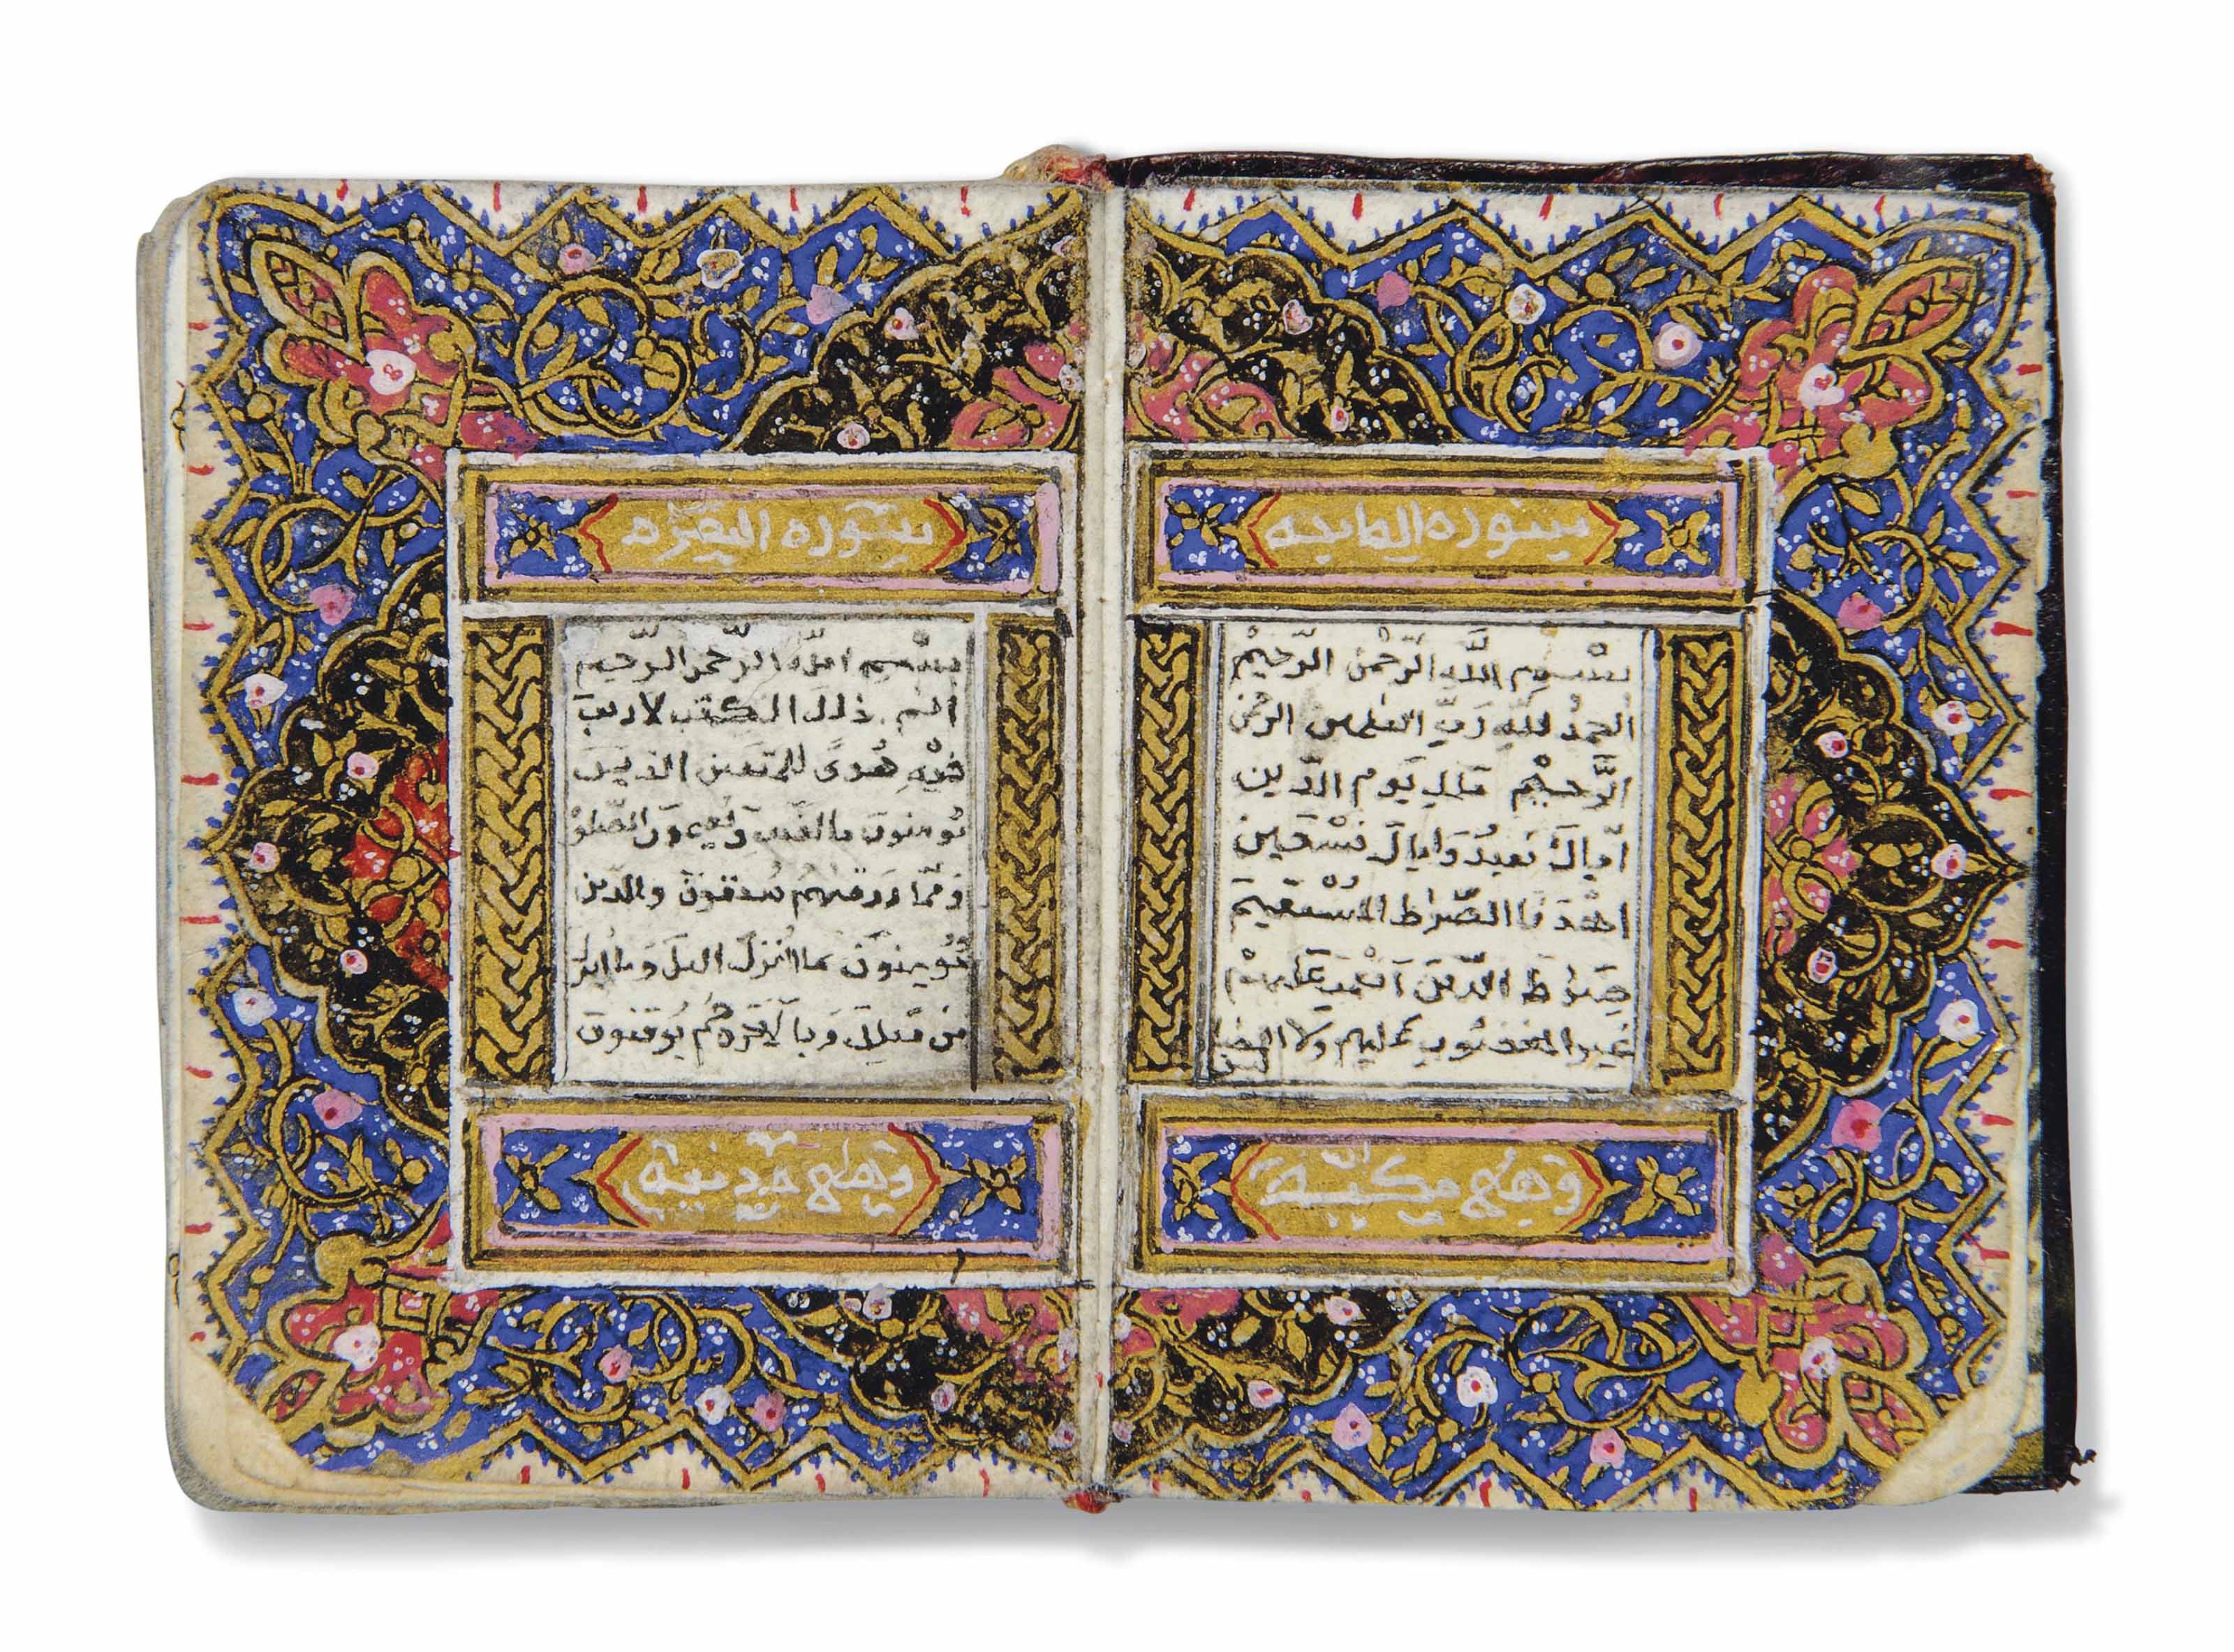 سورة الفاتحة
بِسْمِ اللَّهِ الرَّحْمٰنِ الرَّحِيمْ
الحمدُ للّٰهِ رَبِّ العٰلمين الرحمٰن
الرَّحيْم مٰلكِ يَوم الدّين
اِيّاكَ نَعبدُ وَاياكَ نَسْتَعين
اهْدنَا الصّراطَ المُسْتقيمَ
صِرَاطَ الّذينَ اَنْعمتَ عَليهمْ
غيرِ المغضُوبِ عليهم ولا الضا
لين
وَهِيَ مكيّة
سورة البقرة
بِسْمِ اللّٰه الرّحمن الرّحيم
الم ذلكَ الكتٰب لا ريبَ
فيْهِ هُدىً للمتقين الذينَ
يُومنونَ بالغيب وَيُقيمونَ الصّلوْ
وَممّا رزقنهم ينفقونَ والذين
يُومِنونَ بما اُنزلَ اليكَ وَما انزلَ
مِن قبلكَ وَبالاخرة هُم يُوقنونَ
وَهِيَ مَدنية